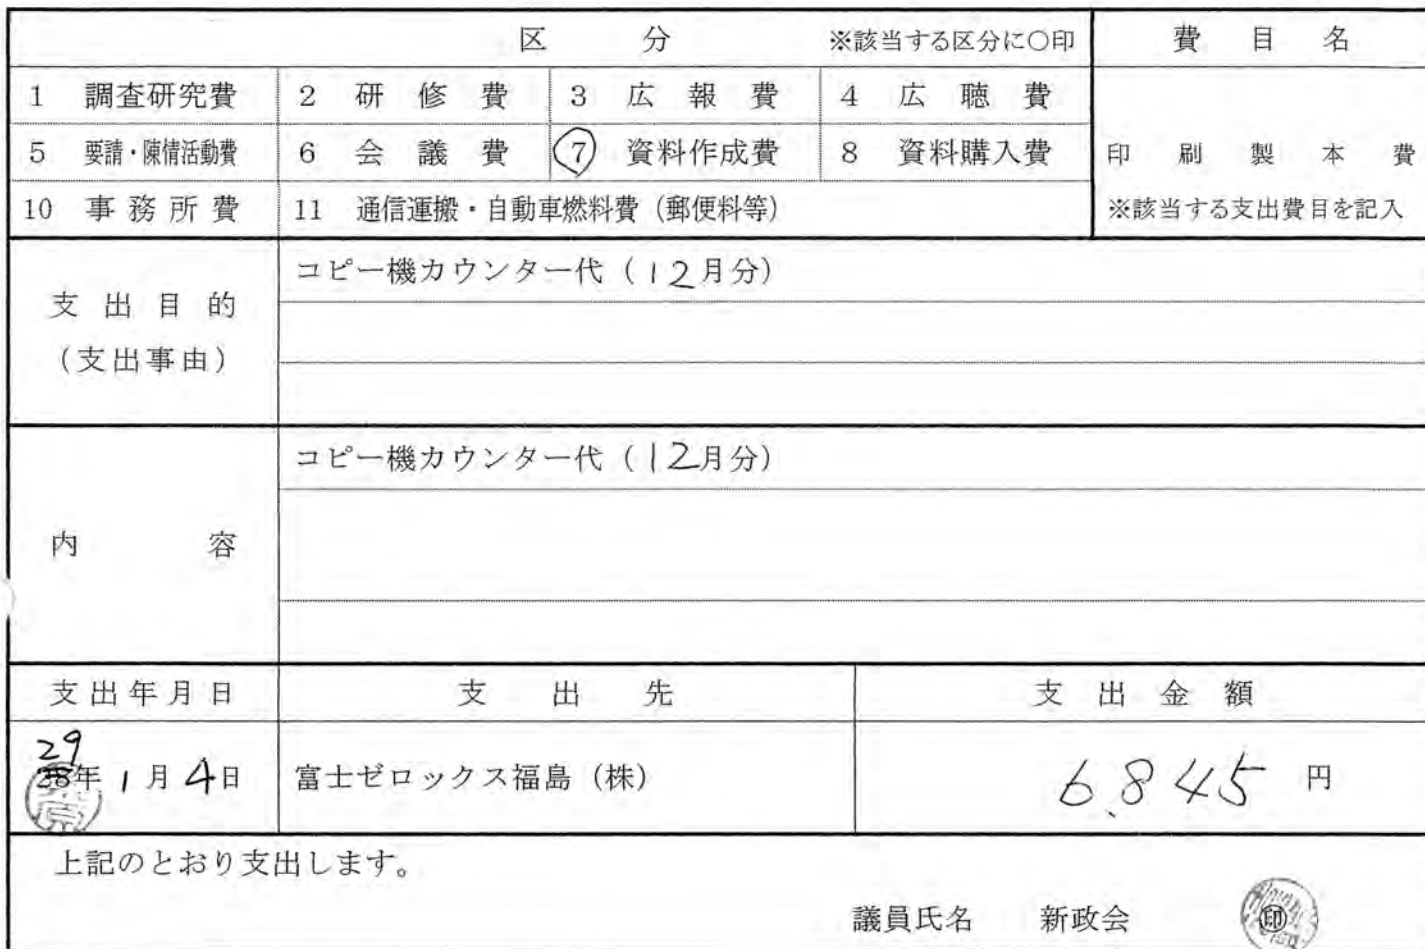 区 分 ※該当する区分に○印 費 目 名
1 調査研究費 2 研 修 費 3 広 報 費 4 広 聴 費
5 要請・陳情活動費 6 会 議 費 7 資料作成費 8 資料購入費 印 刷 製 本 費
10 事 務 所 費 11 通信運搬・自動車燃料費（郵便料等） ※該当する支出費目を記入
支 出 目 的
（支出事由）
コピー機カウンター代（12月分）
内 容
コピー機カウンター代（12月分）
支 出 年 月 日 支 出 先 支 出 金 額
29
28年 1月 4日 富士ゼロックス福島（株） 6,845 円
上記のとおり支出します。
議員氏名 新政会 印